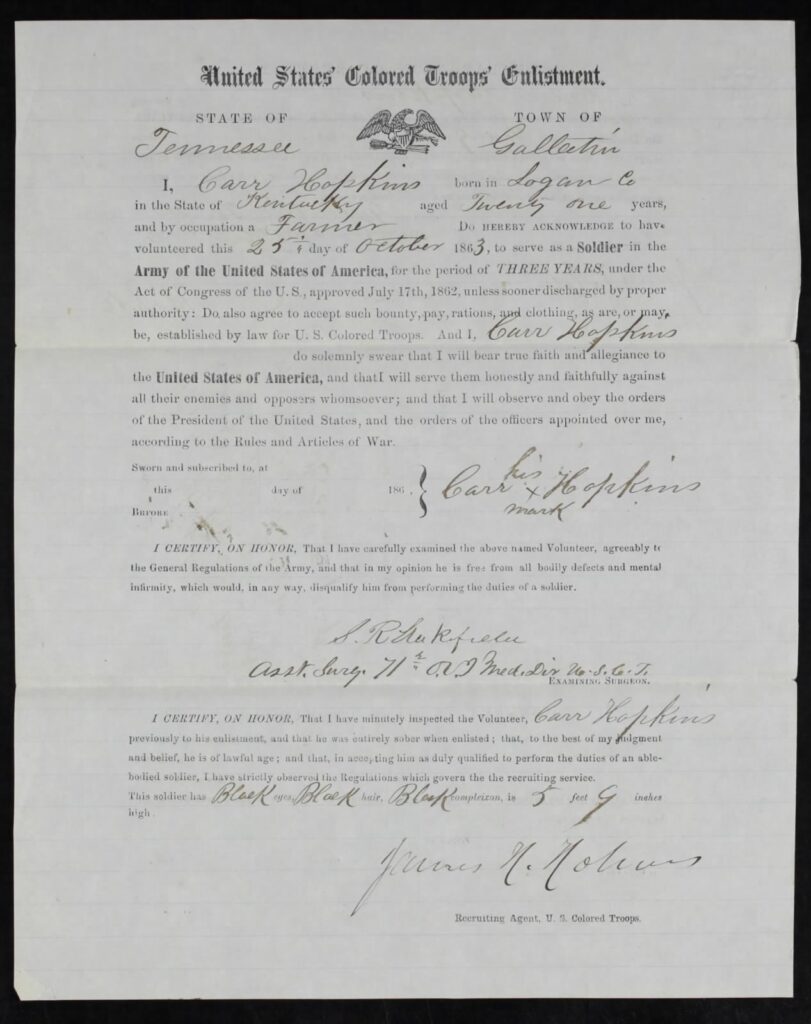 United States' Colored Troops' Enlistment.
STATE OF TOWN OF
Tennessee Gallatin
I, Carr Hopkins born in Logan Co
in the State of Kentucky aged Twenty one years,
and by occupation a Farmer Do HEREBY ACKNOWLEDGE to have
volunteered this 25th day of October 1863, to serve as a Soldier in the
Army of the United States of America, for the period of THREE YEARS, under the
Act of Congress of the U. S., approved July 17th, 1862, unless sooner discharged by proper
authority: Do, also agree to accept such bounty, pay, rations, and clothing, as are, or may,
be, established by law for U. S. Colored Troops. And I, Carr Hopkins
do solemnly swear that I will bear true faith and allegiance to
the United States of America, and that I will serve them honestly and faithfully against
all their enemies and opposers whomsoever; and that I will observe and obey the orders
of the President of the United States, and the orders of the officers appointed over me,
according to the Rules and Articles of War.
Sworn and subscribed to, at
this day of 186 .
BEFORE
his
Carr x Hopkins
mark
I CERTIFY, ON HONOR, That I have carefully examined the above named Volunteer, agreeably to
the General Regulations of the Army, and that in my opinion he is free from all bodily defects and mental
infirmity, which would, in any way, disqualify him from performing the duties of a soldier.
S. R.
Asst. Surg. 71st O.V.I Med. Dir U.S.C.T.
EXAMINING SURGEON.
I CERTIFY, ON HONOR, That I have minutely inspected the Volunteer, Carr Hopkins
previously to his enlistment, and that he was entirely sober when enlisted; that, to the best of my judgment
and belief, he is of lawful age; and that, in accepting him as duly qualified to perform the duties of an able-
bodied soldier, I have strictly observed the Regulations which govern the recruiting service.
This soldier has Black eyes, Black hair, Black compleixon, is 5 feet 9 inches
high.
James H. Holmes
Recruiting Agent, U. S. Colored Troops.